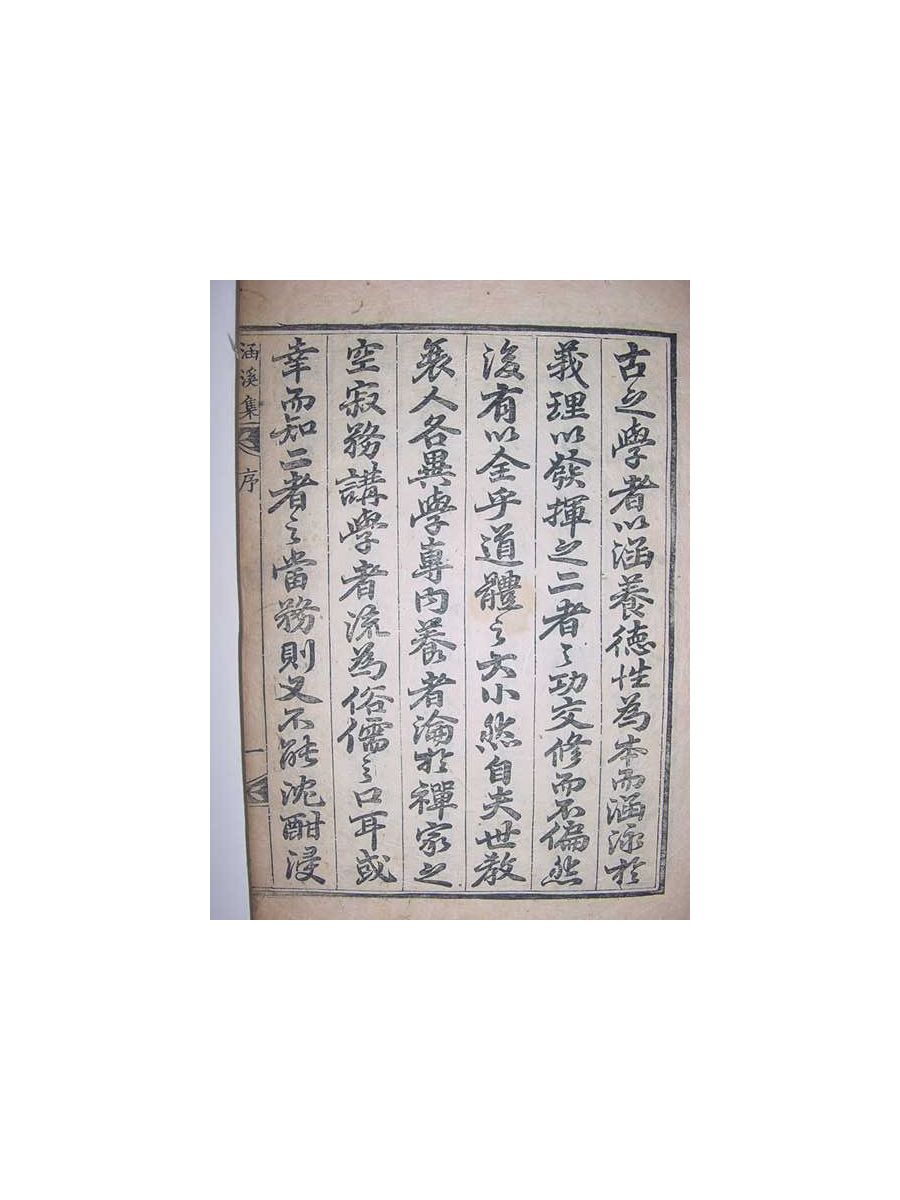 古之學者以涵養德性為本而涵泳於
義理以發揮之二者之功交修而不偏然
後有以全乎道體之大小然自夫世教
衰人各異學專內養者淪於禪家之
空寂務講學者流為俗儒之口耳或
幸而知二者之當務則又不能沈酣浸
涵溪集 序 一